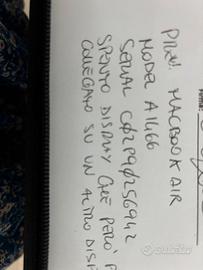 MACBOOK AIR
MODEL A1466
SERIAL C02P9025G942
SPENTO DISPLAY CHE PERÒ
COLLEGATO SU UN ALTRO DISP